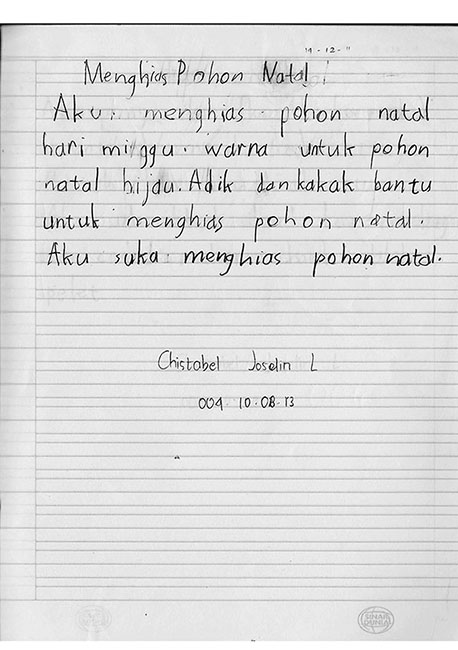 19 - 12 - 11
Menghias Pohon Natal
Aku menghias pohon natal
hari minggu. warna untuk pohon
natal hijau. Adik dan kakak bantu
untuk menghias pohon natal.
Aku suka menghias pohon natal.
Chistabel Joselin L
004 10.08.13
SINAR
DUNIA